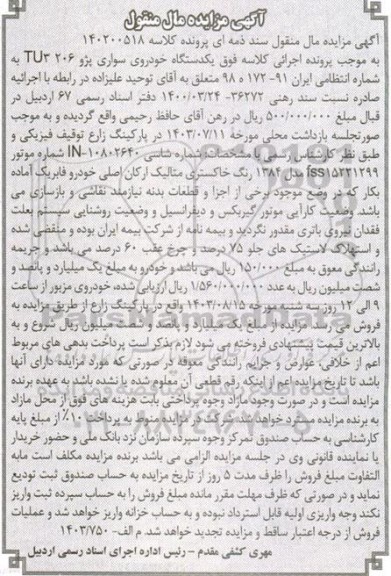 آگهی مزایده مال منقول
آگهی مزایده مال منقول سند ذمه ای پرونده کلاسه ۱۴۰۲۰۰۵۱۸
به موجب پرونده اجرائی کلاسه فوق یکدستگاه خودروی سواری پژو ۲۰۶ TU۳ به
شماره انتظامی ایران ۹۱- ۱۷۲ ه ۹۸ متعلق به آقای توحید علیزاده در رابطه با اجرائیه
صادره نسبت سند رهنی ۳۶۲۷۲- ۱۴۰۰/۰۳/۲۴ دفتر اسناد رسمی ۶۷ اردبیل در
قبال مبلغ ۵۰۰/۰۰۰/۰۰۰ ریال در رهن آقای حافظ رحیمی واقع گردیده و به موجب
صورتجلسه بازداشت محلی مورخه ۱۴۰۳/۰۷/۱۱ در پارکینگ زارع توقیف فیزیکی و
طبق نظر کارشناس رسمی با مشخصات: شماره شاسی IN-۱۰۸۰۲۶۴۰ شماره موتور
۱۵۲۲۱۲۹۹ مدل ۱۳۸۴ رنگ خاکستری متالیک ارکان اصلی خودرو فابریک آماده
بکار که در وضعیت موجود برخی از اجزا و قطعات بدنه نیازمند نقاشی و بازسازی می
باشد. وضعیت کارآیی موتور گیربکس و دیفرانسیل و وضعیت روشنایی سیستم بعلت
فقدان نیروی باتری مقدور نگردید و بیمه نامه از شرکت بیمه ایران بوده و منقضی شده
و استهلاک لاستیک های جلو ۷۵ درصد و چرخ عقب ۶۰ درصد می باشد و جریمه
رانندگی معوق به مبلغ ۱۵۰/۰۰۰ ریال می باشد و خودرو به مبلغ یک میلیارد و پانصد و
شصت میلیون ریال به عدد ۱/۵۶۰/۰۰۰/۰۰۰ ریال ارزیابی شده، خودروی مزبور از ساعت
۹ الی ۱۲ روز سه شنبه مورخه ۱۴۰۳/۰۸/۱۵ واقع در پارکینگ زارع از طریق مزایده به
فروش می رسد. مزایده از مبلغ یک میلیارد و پانصد و شصت میلیون ریال شروع و به
بالاترین قیمت پیشنهادی فروخته می شود لازم بذکر است پرداخت بدهی های مربوط
اعم از خلافی، عوارض و جرایم رانندگی معوقه در صورتی که مورد مزایده دارای آنها
باشد تا تاریخ مزایده اعم از اینکه رقم قطعی آن معلوم شده یا نشده باشد به عهده برنده
مزایده است و در صورت وجود مازاد وجوه پرداختی بابت هزینه های فوق از محل مازاد
به برنده مزایده مسترد خواهد شد. شرکت در مزایده منوط به پرداخت ۱۰٪ از مبلغ پایه
کارشناسی به حساب صندوق تمرکز وجوه سپرده سازمان نزد بانک ملی و حضور خریدار
یا نماینده قانونی وی در جلسه مزایده الزامی می باشد برنده مزایده مکلف است مابه
التفاوت مبلغ فروش را ظرف مدت ۵ روز از تاریخ مزایده به حساب صندوق ثبت تودیع
نماید و در صورتی که ظرف مهلت مقرر مانده مبلغ فروش را به حساب سپرده ثبت واریز
نکند وجه واریزی اولیه قابل استرداد نبوده و به حساب خزانه واریز خواهد شد و عملیات
فروش از درجه اعتبار ساقط و مزایده تجدید خواهد شد. م الف- ۱۴۰۳/۷۵۰
مهری کشفی مقدم - رئیس اداره اجرای اسناد رسمی اردبیل